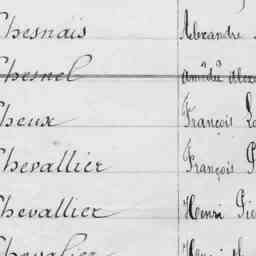 Chesnais Alexandre
Chesnel Amédé Alex
Cheux François L
Chevallier François P
Chevallier Henri Pie
Chevalier Henri